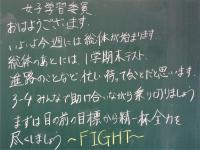 女子学習委員
おはようございます．
いよいよ今週には総体が始まります．
総体のあとには1学期末テスト．
進路のことなど忙しい時って多いことだと思います．
3-4みんなで助け合いながら乗りきりましょう
まずは目の前の目標から精一杯全力を
尽くしましょう 〜FIGHT〜